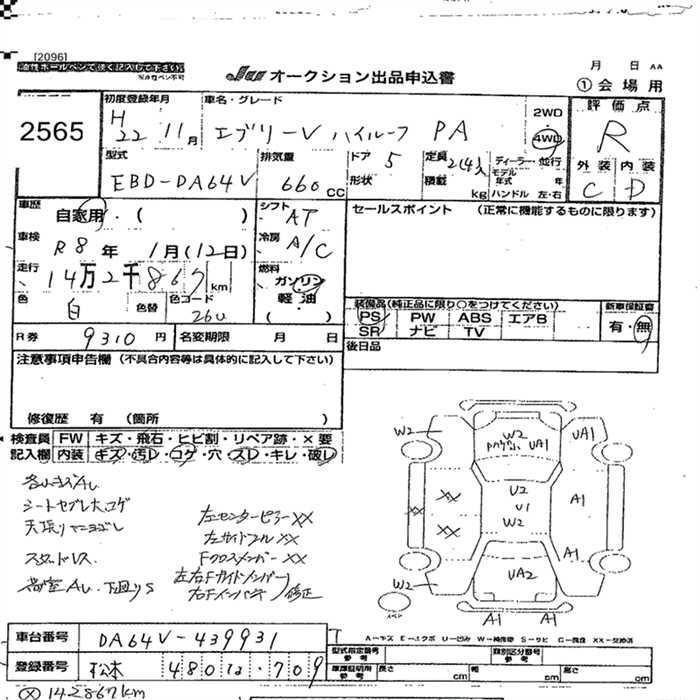 [2096]
油性ボールペンで強く記入して下さい。
※水性ペン不可
JU オークション出品申込書
月 日 AA
①会場用
2565
初度登録年月
H22 11月
車名・グレード
エブリーV ハイルーフ PA
2WD
4WD
評価点
R
型式
EBD-DA64V
排気量
660 CC
ドア 5
形状
定員 2/4人
積載 kg
ディーラー・並行
モデル年式 年
ハンドル 左・右
外装 内装
C D
車歴
自家用・( )
シフト AT
セールスポイント (正常に機能するものに限ります)
車検
R8年 1月(12日)
冷房 A/C
走行
14万2千867km
燃料
ガソリン
軽油
( )
色 白
色替
色コード 26U
装備品(純正品に限り○をつけてください)
PS PW ABS エアB
SR ナビ TV
新車保証書
有・無
R券 9310円
名変期限 月 日
後日品
注意事項申告欄 (不具合内容等は具体的に記入して下さい)
修復歴 有 (箇所 )
検査員 FW キズ・飛石・ヒビ割・リペア跡・×要
記入欄 内装 キズ・汚レ・コゲ・穴・スレ・キレ・破レ
シートヤブレ大コゲ
天張りヨゴレ
スタッドレス
荷室AU.下回りS
左センターピラーXX
左サイドフルXX
FクロスメンバーXX
左右Fサイドメンバー
右Fインパネ 修正
W2
W2
UA1
UA1
XX
XX
XX
U2
U1
W2
A1
A1
W2
UA2
A1
A1
スペア
A=キズ E=エクボ U=凹み W=補修跡 S=サビ C=腐食 XX=交換済
車台番号 DA64V-439931
登録番号 松本 480 709
型式指定番号 参考
類別区分番号 参考
車庫証明用 参考 長さ cm 幅 cm 高さ cm
142867km